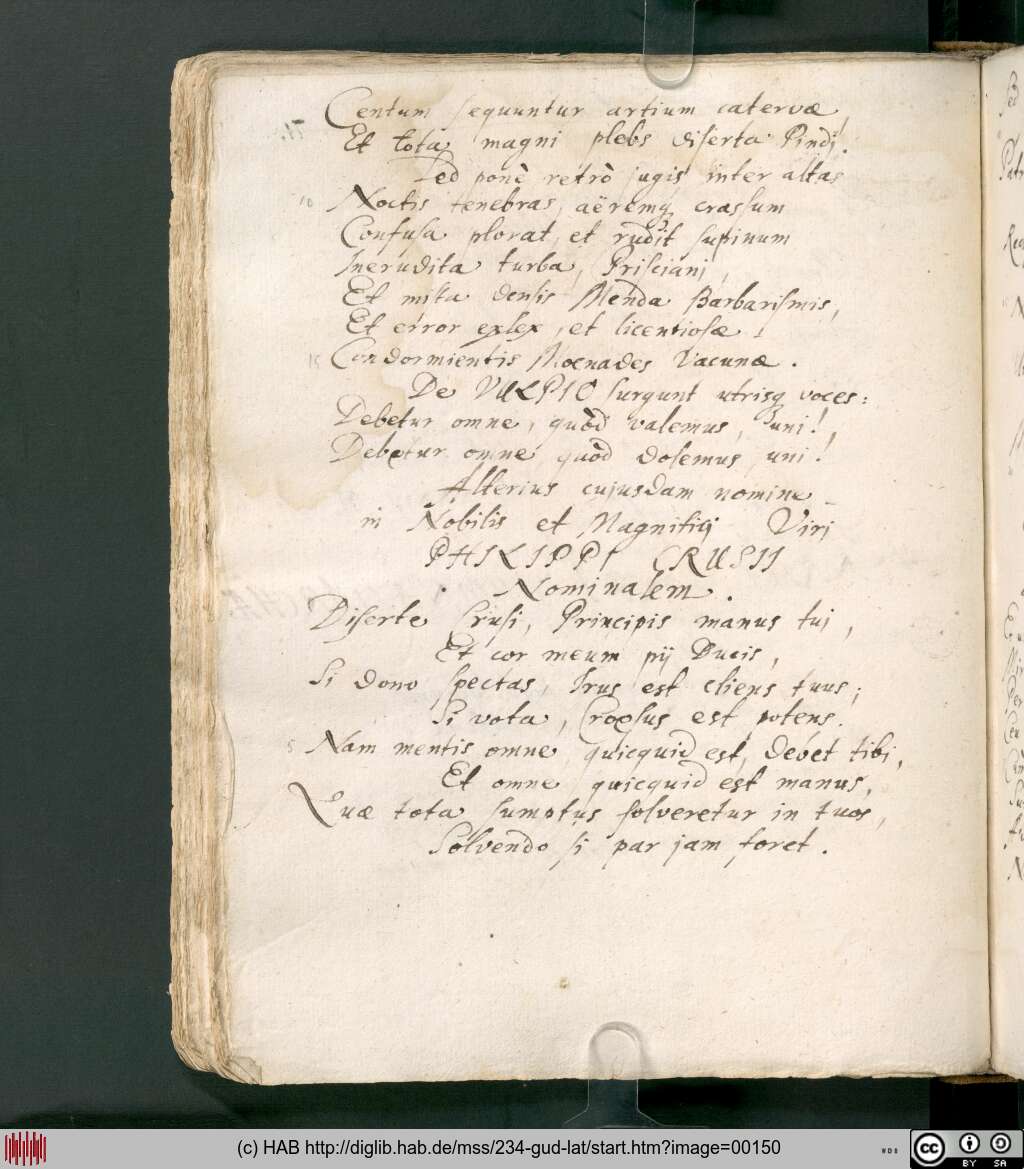 Centum sequuntur artium catervæ,
Et tota magni plebs diserta Pindi.
Sed ponè retrò jugis inter altas
10 Noctis tenebras, aëremq; crassum
Confusa plorat, et rudit supinum
Inerudita turba, Prisciani,
Et mista densis Menda Barbarismis,
Et error exlex, et licentiosæ
15 Condormientis Moenades Vacunæ.
De VULPIO surgunt utrisq; voces:
Debetur omne, quòd valemus, uni!,
Debetur omne quòd dolemus, uni!
Alterius cujusdam nomine
in Nobilis et Magnifici Viri
PHILIPPI CRUSII
Nominalem.
Diserte Crusi, Principis manus tui,
Et cor meum pij Ducis,
Si dono spectas, Irus est cliens tuus;
Si vota, Croesus est, potens.
5 Nam mentis omne, quicquid est, debet tibi,
Et omne quicquid est manus,
Quæ tota sumptus solveretur in tuos,
Solvendo si par jam foret.
(c) HAB http://diglib.hab.de/mss/234-gud-lat/start.htm?image=00150
cc BY SA